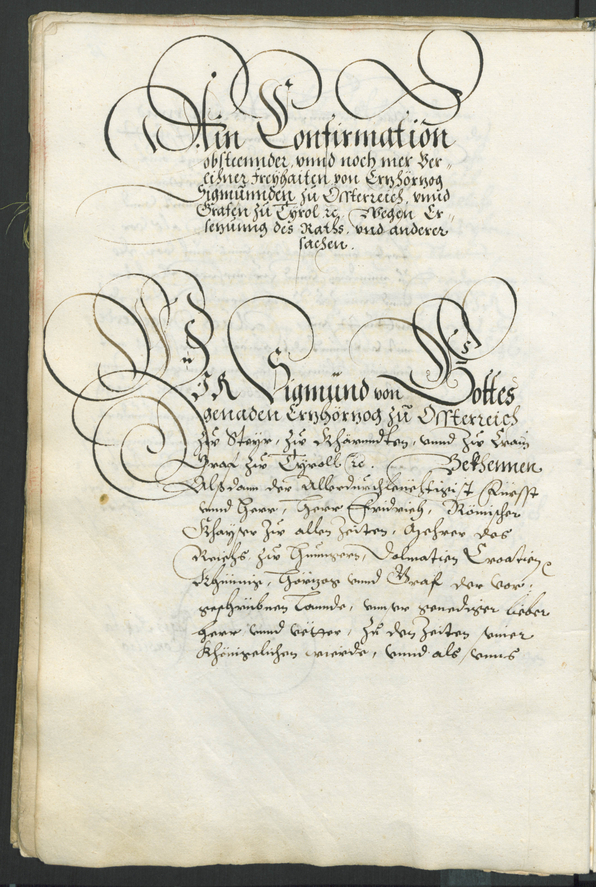 Ain Confirmation
obsteennder, vnnd noch mer Ver-
lihner Freyhaiten von Ertzhörtzog
Sigmunnden zu Össterreich, vnnd
Grafen zu Tyrol ec. Wegen Er-
setzung des Raths, vnd anderer
sachen.
WIR Sigmund von Gottes
genaden Ertzhörtzog zu Össterreich
zu Steyr, zu Khärnndten, vnnd zu Crain
Graf zu Tyroll ec. Bekhennen
Als dann der Allerdurchleuchtigist Fürsst
vnnd Herr, Herr Fridrich, Römischer
Khayser zu allen Zeiten, Mehrer des
Reichs, zu Hungern, Dalmatien Croatien ec
Khünig, Hörtzog vnnd Graf der vor-
geschribnen Lannde, vnnser genediger lieber
Herr vnnd vetter, Zu den Zeiten seiner
Khöniglichen wierde, vnnd als vnns